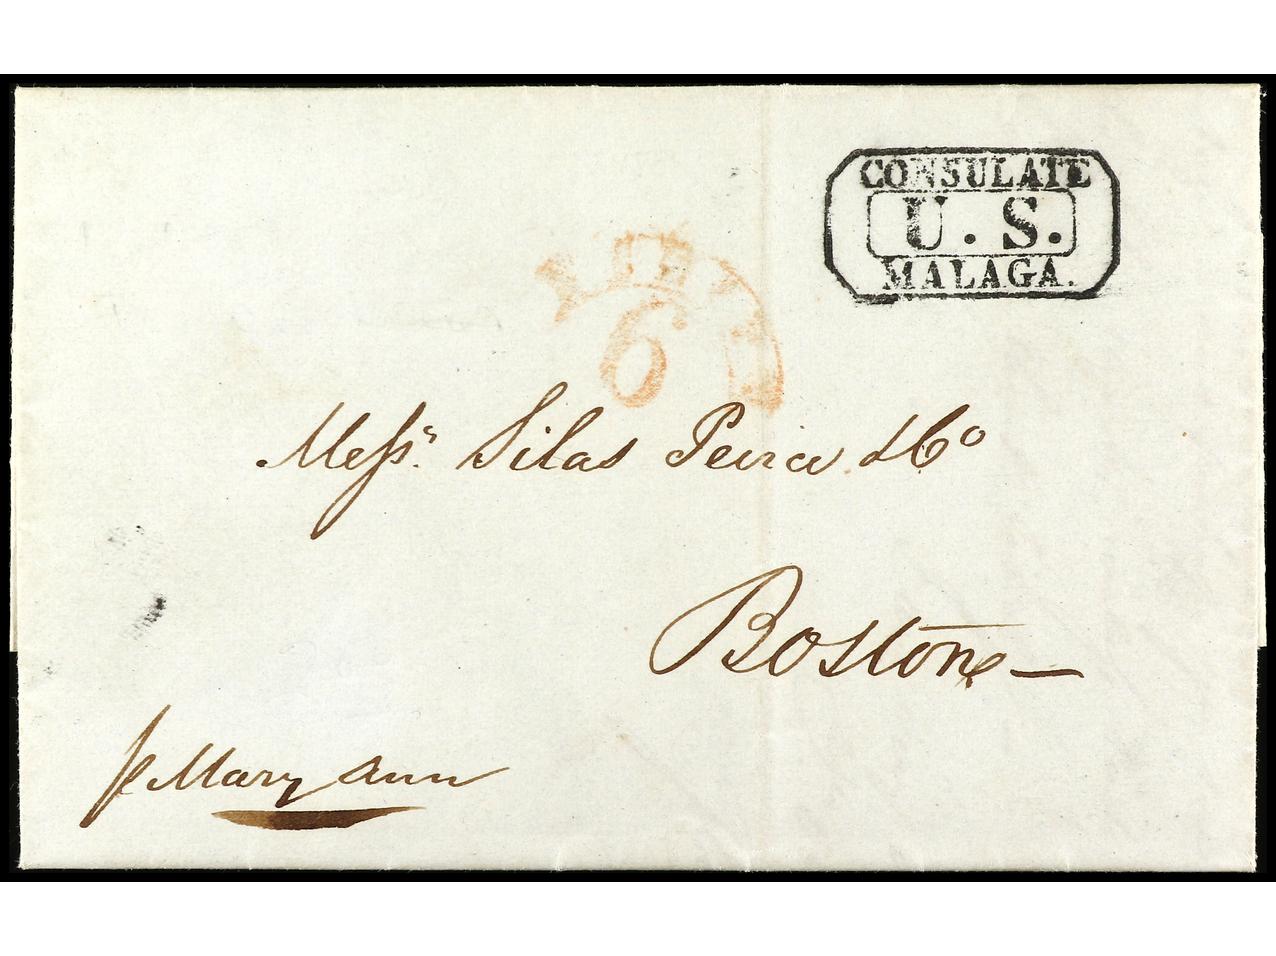 CONSULATE
U. S.
MALAGA.
6
Messrs. Silas Peirce & Co
Boston
p Mary Ann